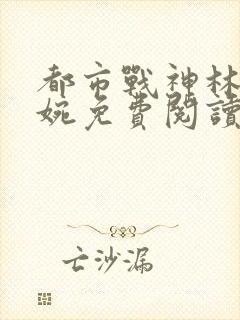 都市戰神林
婉免費閱讀
亡沙漏